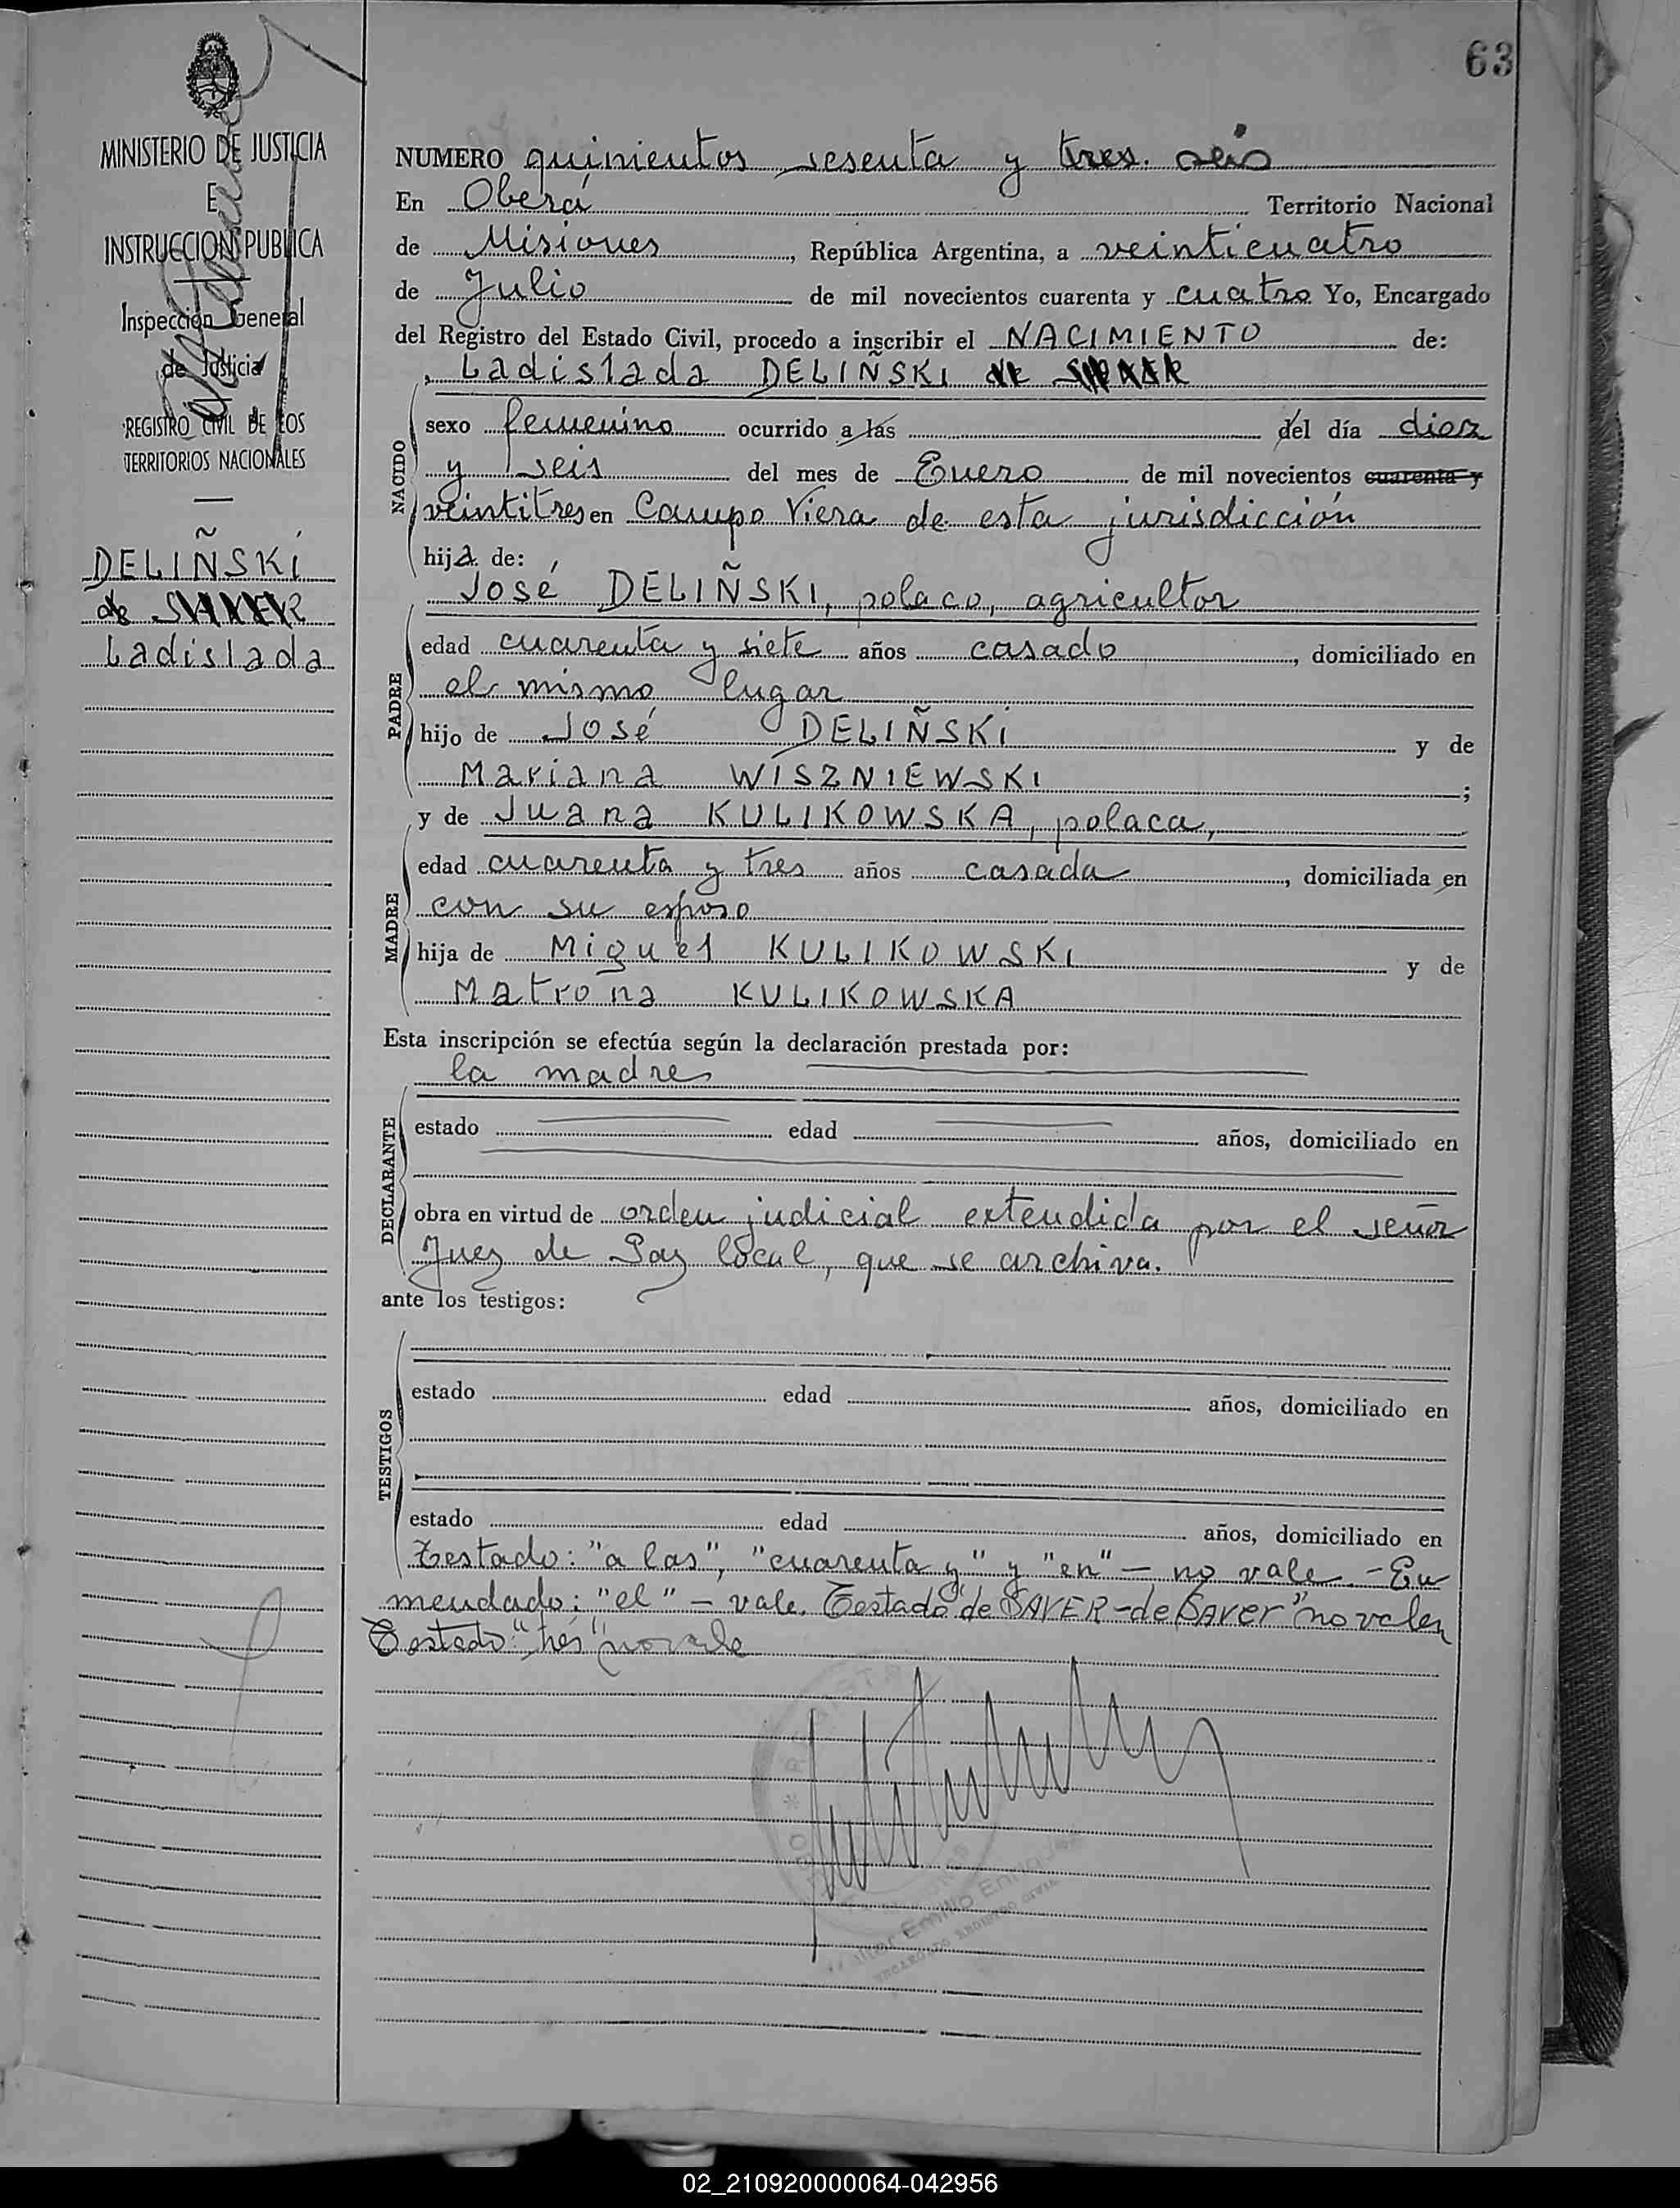 63
MINISTERIO DE JUSTICIA
E
INSTRUCCION PUBLICA
Inspección General
de Justicia
REGISTRO CIVIL DE LOS
TERRITORIOS NACIONALES
DELIÑSKI
de
Ladislada
NUMERO quinientos sesenta y tres. seis
En Oberá Territorio Nacional
de Misiones, República Argentina, a veinticuatro
de Julio de mil novecientos cuarenta y cuatro Yo, Encargado
del Registro del Estado Civil, procedo a inscribir el NACIMIENTO de:
Ladislada DELIÑSKI de
NACIDO
sexo femenino ocurrido a las del día diez
y seis del mes de Enero de mil novecientos cuarenta y
veintitres en Campo Viera de esta jurisdicción
hija de:
José DELIÑSKI, polaco, agricultor
PADRE
edad cuarenta y siete años casado, domiciliado en
el mismo lugar
hijo de José DELIÑSKI y de
Mariana WISZNIEWSKI;
y de Juana KULIKOWSKA, polaca,
MADRE
edad cuarenta y tres años casada, domiciliada en
con su esposo
hija de Miguel KULIKOWSKI y de
Matrona KULIKOWSKA
Esta inscripción se efectúa según la declaración prestada por:
la madre
DECLARANTE
estado edad años, domiciliado en
obra en virtud de orden judicial extendida por el señor
Juez de Paz local, que se archiva.
ante los testigos:
TESTIGOS
estado edad años, domiciliado en
estado edad años, domiciliado en
Testado: "a las", "cuarenta y" y "en" — no vale. - En
mendado: "el" — vale. Testado "de SAVER - de Saver" no valen
Testado "tres" no vale
Emilio
ENCARGADO REGISTRO CIVIL
02_210920000064-042956